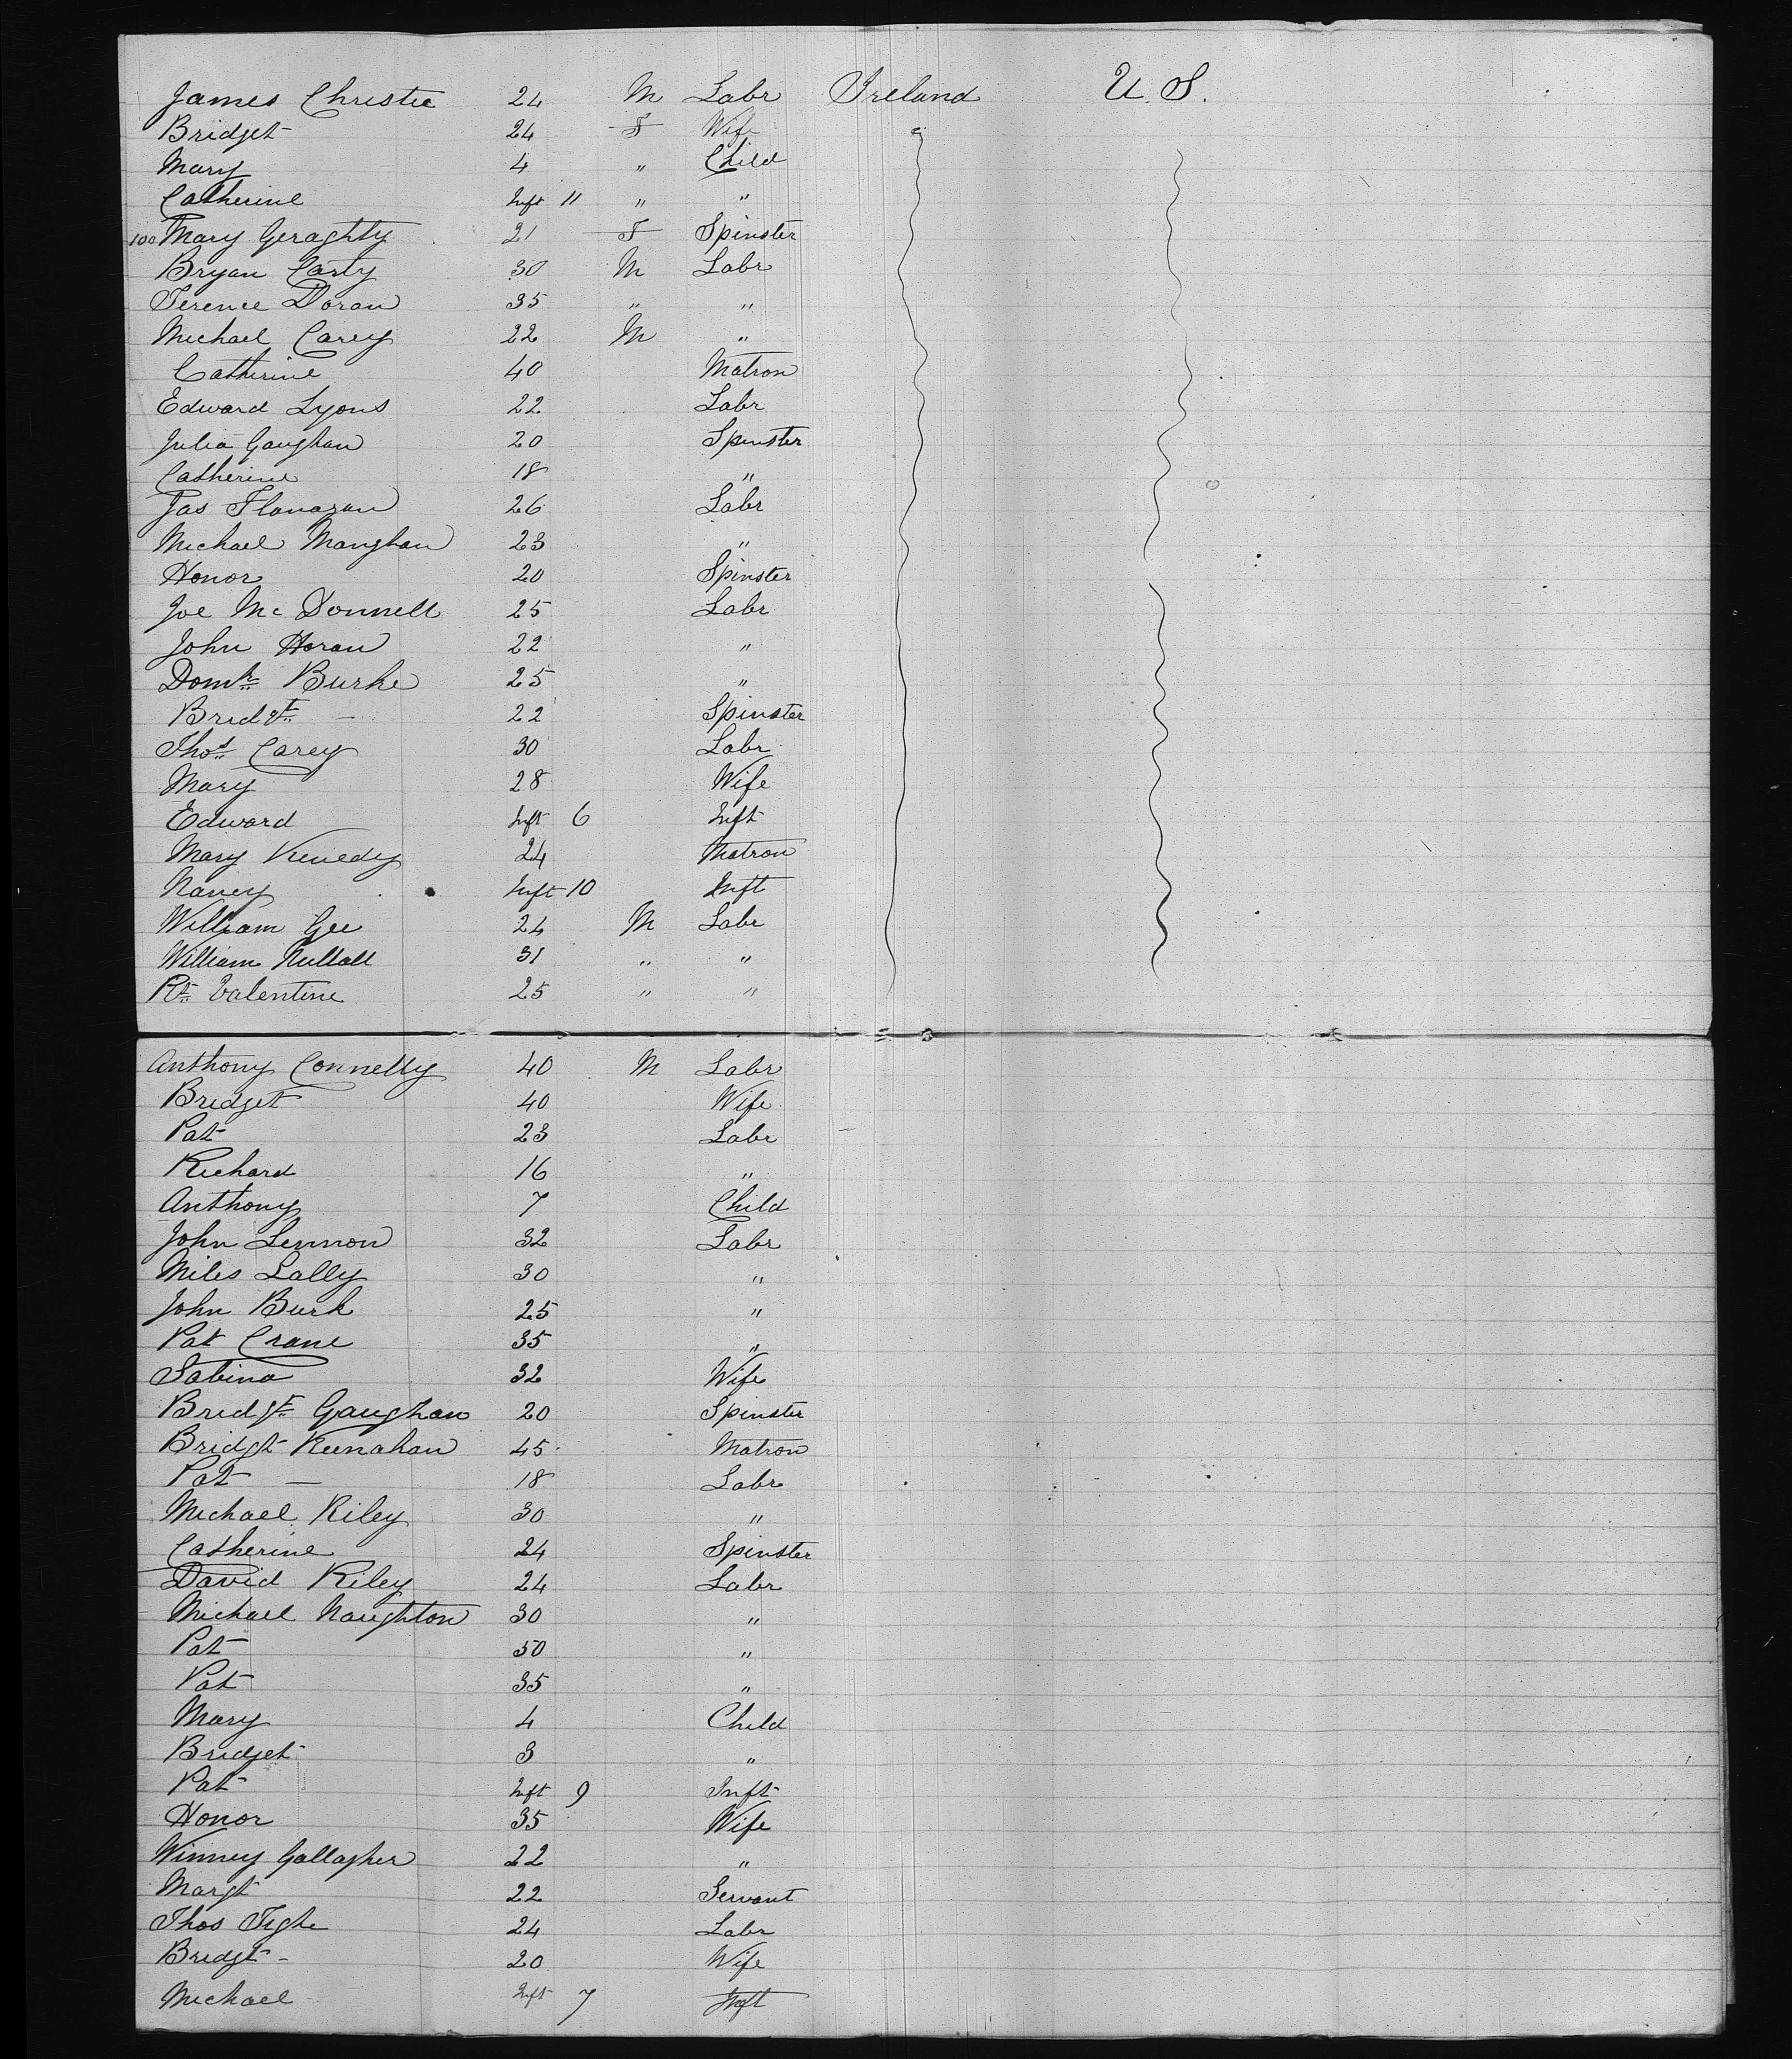 James Christie 24 M Labr Ireland U. S.
Bridget 24 F Wife
Mary 4 " Child
Catherine Inft 11 " "
100 Mary Geraghty 21 F Spinster
Bryan Carty 30 M Labr
Terence Doran 35 " "
Michael Carey 22 M "
Catherine 40 Matron
Edward Lyons 22 Labr
Julia Gaughan 20 Spinster
Catherine 18 "
Jas Flanagan 26 Labr
Michael Manghan 23 "
Honor 20 Spinster
Joe Mc Donnell 25 Labr
John Horan 22 "
Domk Burke 25 "
Bridgt - 22 Spinster
Thos Carey 30 Labr
Mary 28 Wife
Edward Inft 6 Inft
Mary Kenedy 24 Matron
Nancy Inft 10 Inft
William Gee 24 M Labr
William Nuttall 31 " "
Rt Valentine 25 " "
Anthony Connelly 40 M Labr
Bridget 40 Wife
Pat 23 Labr
Richard 16 "
Anthony 7 Child
John Lennon 32 Labr
Miles Lally 30 "
John Burk 25 "
Pat Crane 35 "
Sabina 32 Wife
Bridgt Gaughan 20 Spinster
Bridgt Keenahan 45 Matron
Pat — 18 Labr
Michael Riley 30 "
Catherine 24 Spinster
David Riley 24 Labr
Michael Naughton 30 "
Pat 50 "
Pat 35 "
Mary 4 Child
Bridget 3 "
Pat Inft 9 Inft
Honor 35 Wife
Winney Gallagher 22 "
Margt 22 Servant
Thos Tighe 24 Labr
Bridgt - 20 Wife
Michael Inft 7 Inft